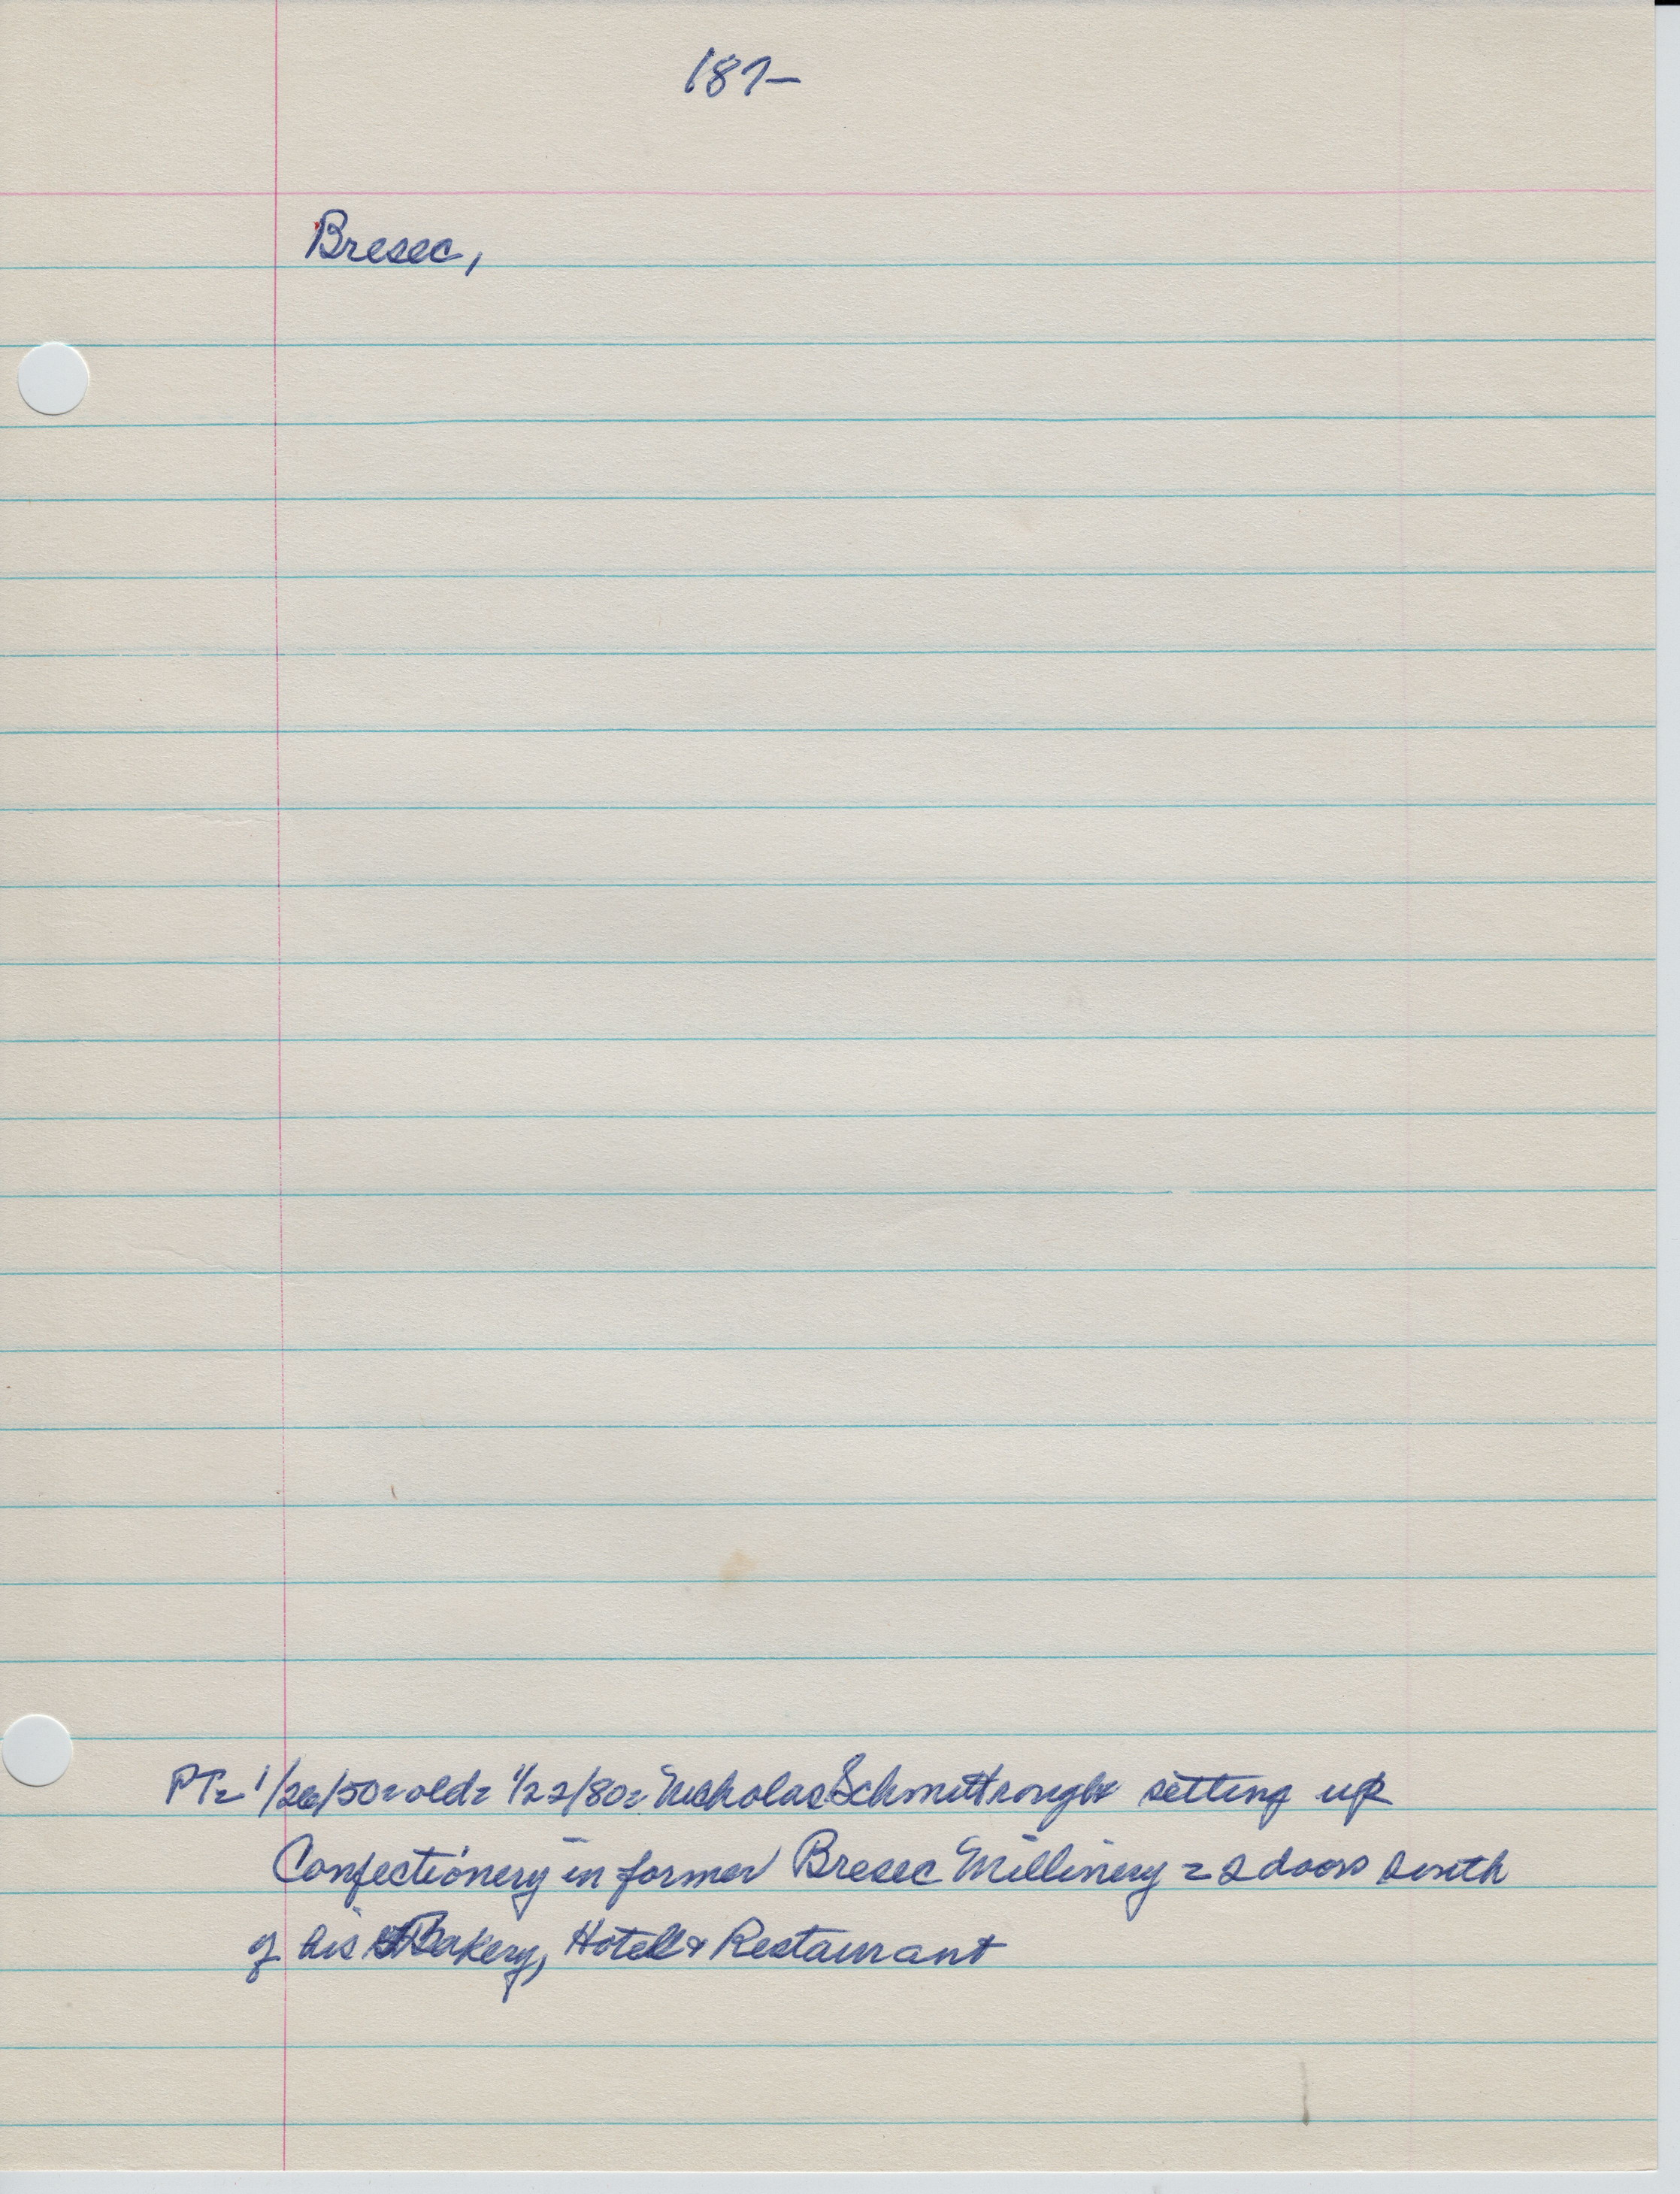 187-
Bresec,
PT= 1/26/50= old= 1/22/80= Nicholas Schmittrought setting up
Confectionery in former Bresec Millinery = 2 doors south
of his Bakery, Hotel & Restaurant